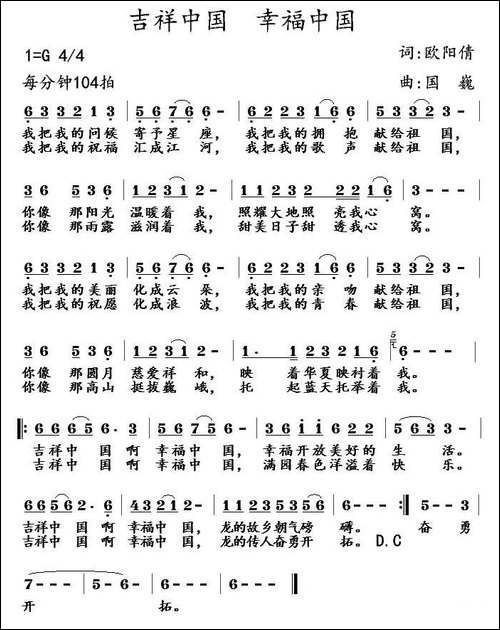 吉祥中国 幸福中国
1=G 4/4 词:欧阳倩
每分钟104拍 曲:国 巍
6 3 3 2 1 3 | 5 6 7 6 6 - | 6 2 2 3 1 6 | 5 5 3 2 3 - |
我把我的问候 寄予星 座, 我把我的拥 抱 献给祖 国,
我把我的祝福 汇成江 河, 我把我的歌 声 献给祖 国,
3 6 5 3 6 | 1 2 3 1 2 - | 1 2 3 2 1 2 2 2 1 6 | 3 - - - |
你像 那阳光 温暖着 我, 照耀大地照 亮我心 窝。
你像 那雨露 滋润着 我, 甜美日子甜 透我心 窝。
6 3 3 2 1 3 | 5 6 7 6 6 - | 6 2 2 3 1 6 | 5 5 3 2 3 - |
我把我的美丽 化成云 朵, 我把我的亲 吻 献给祖 国,
我把我的祝愿 化成浪 波, 我把我的青 春 献给祖 国,
3 6 5 3 6 | 1 2 3 1 2 - | 1 · 1 2 3 2 1 6 | 6 - - - |
你像 那圆月 慈爱祥 和, 映 着华夏映衬着 我。
你像 那高山 挺拔巍 峨, 托 起蓝天托举着 我。
‖: 6 6 6 5 6 · 3 | 5 6 1 5 6 - | 3 6 1 1 6 1 2 1 6 | 5 6 3 3 - |
吉祥中 国 啊 幸福中 国, 幸福开放美好的 生 活。
吉祥中 国 啊 幸福中 国, 满园春色洋溢着 快 乐。
6 6 5 6 2 · 6 | 4 3 2 1 2 - | 1 1 2 3 5 3 5 1 5 | 6 - - - :‖ 5 - - 3 |
吉祥中 国 啊 幸福中 国, 龙的故乡朝气磅 礴。 奋 勇
吉祥中 国 啊 幸福中 国, 龙的传人奋勇开 拓。 D.C
7 - - - | 5 - 5 - 6 | 6 - - - ‖
开 拓。